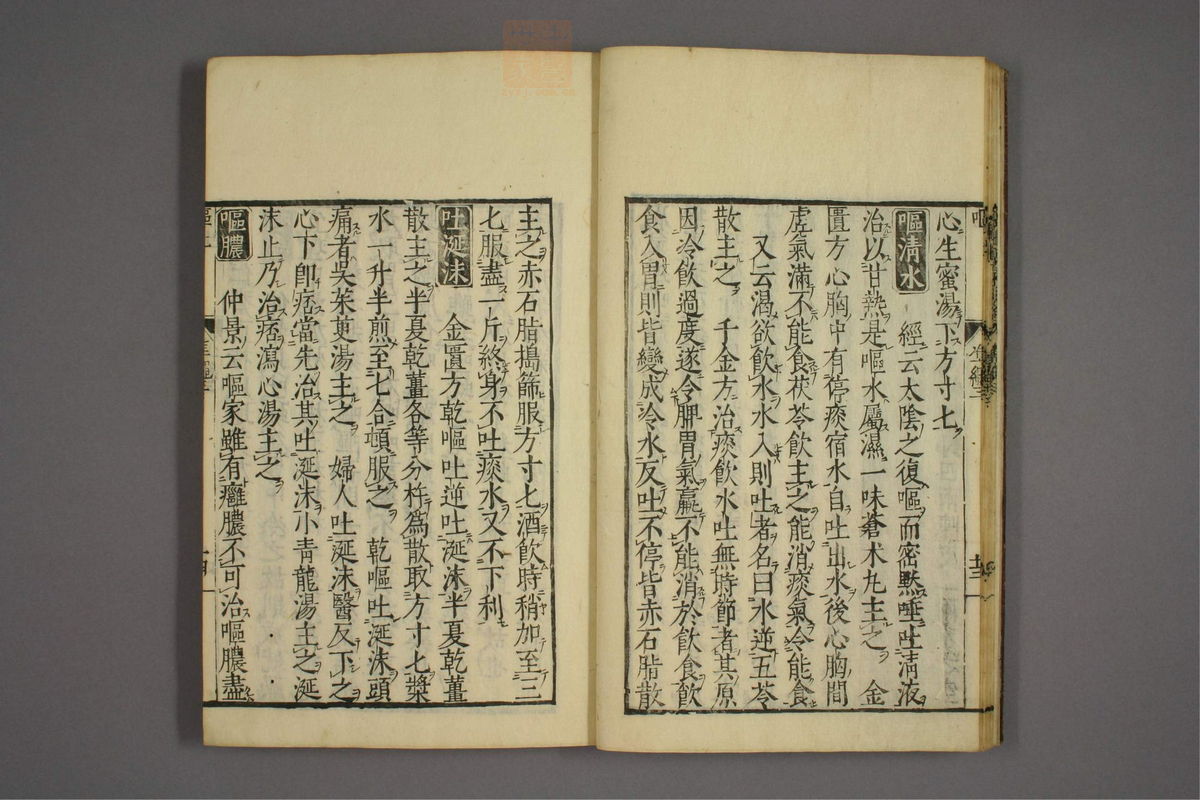 心生蜜湯下方寸匕
嘔清水 經云太陰之復嘔而密黙唾吐清液
治以甘熱是嘔水屬濕一味蒼术丸主之 金
匱方心胸中有停痰宿水自吐出水後心胸間
虛氣滿不能食茯苓飲主之能消痰氣冷能食
又云渴欲飲水水入則吐者名曰水逆五苓
散主之 千金方治痰飲水吐無時節者其原
因冷飲過度遂令脾胃氣羸不能消於飲食飲
食入胃則皆變成冷水反吐不停皆赤石脂散
主之赤石脂搗篩服方寸匕酒飲時稍加至三
匕服盡一斤終身不吐痰水又不下利
吐涎沫 金匱方乾嘔吐逆吐涎沫半夏乾薑
散主之半夏乾薑各等分杵為散取方寸匕漿
水一升半煎至七合頓服之 乾嘔吐涎沫頭
痛者吳茱萸湯主之 婦人吐涎沫醫反下之
心下卽痞當先治其吐涎沫小青龍湯主之涎
沫止乃治痞瀉心湯主之
嘔膿 仲景云嘔家雖有癰膿不可治嘔膿盡